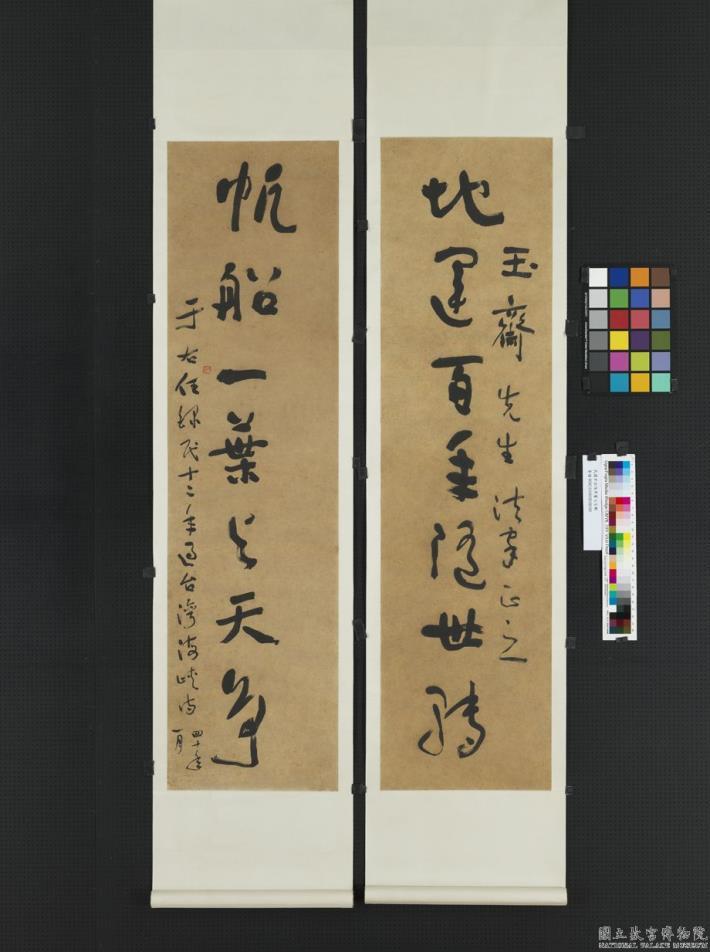 地運百年隨世轉
玉齋先生法家正之
帆船一葉與天爭
于右任錄民十二年過台灣海峽詩
四十年一月
國立故宮博物院
NATIONAL PALACE MUSEUM